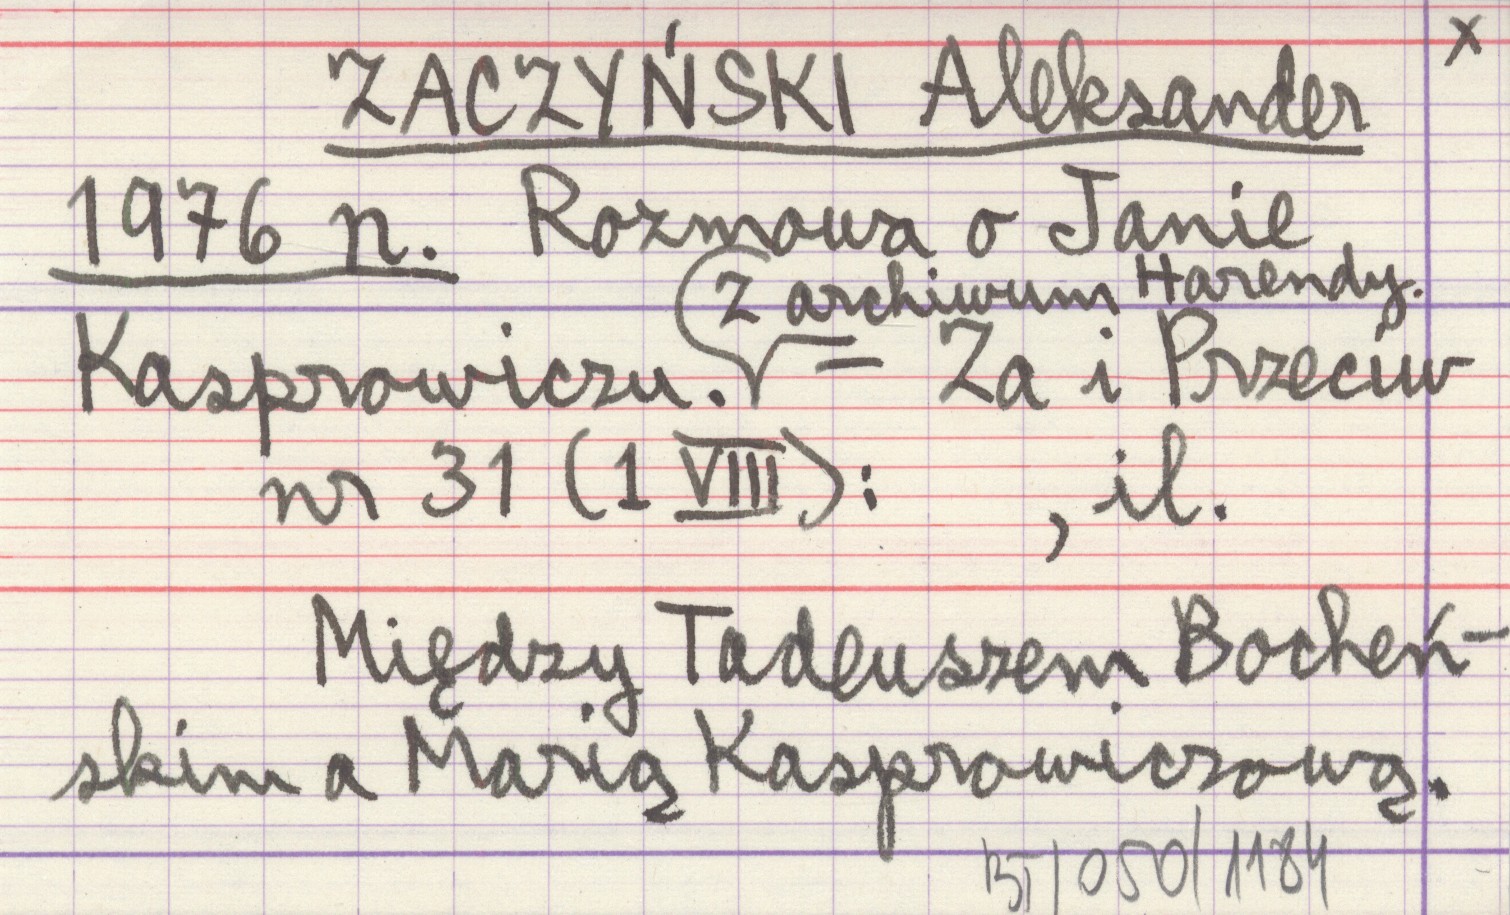 x
ZACZYŃSKI Aleksander
1976 n. Rozmowa o Janie
Z archiwum Harendy.
Kasprowiczu. = Za i Przeciw
nr 31 (1 VIII): , il.
Między Tadeuszem Bocheń-
skim a Marią Kasprowiczową.
BT/050/1184